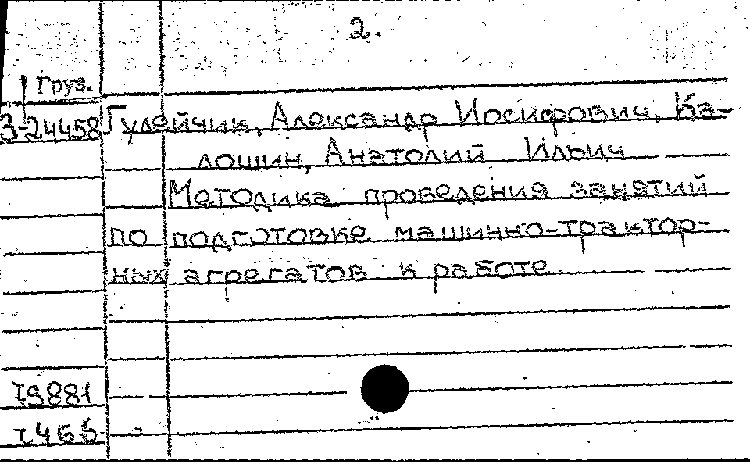 2.
Груз.
З-24458 Гулейчик, Александр Иосифович, Ка-
лошин, Анатолий Ильич
Методика проведения занятий
по подготовке машинно-трактор-
ных агрегатов к работе
I9881
I466